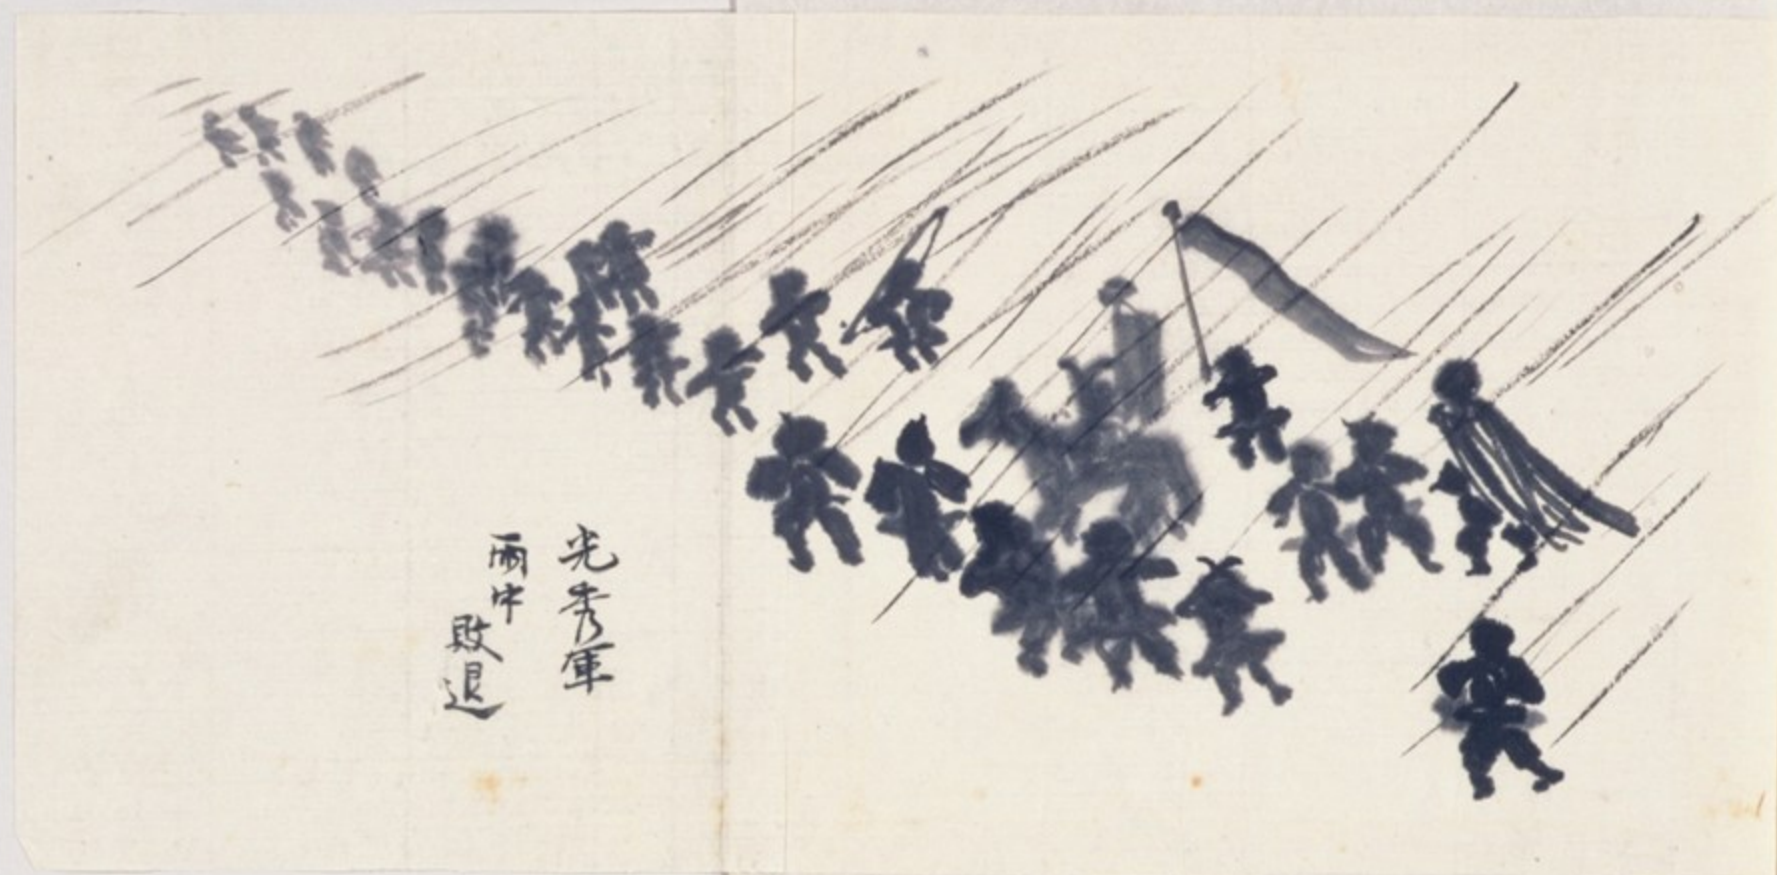 光秀軍
雨中
敗退